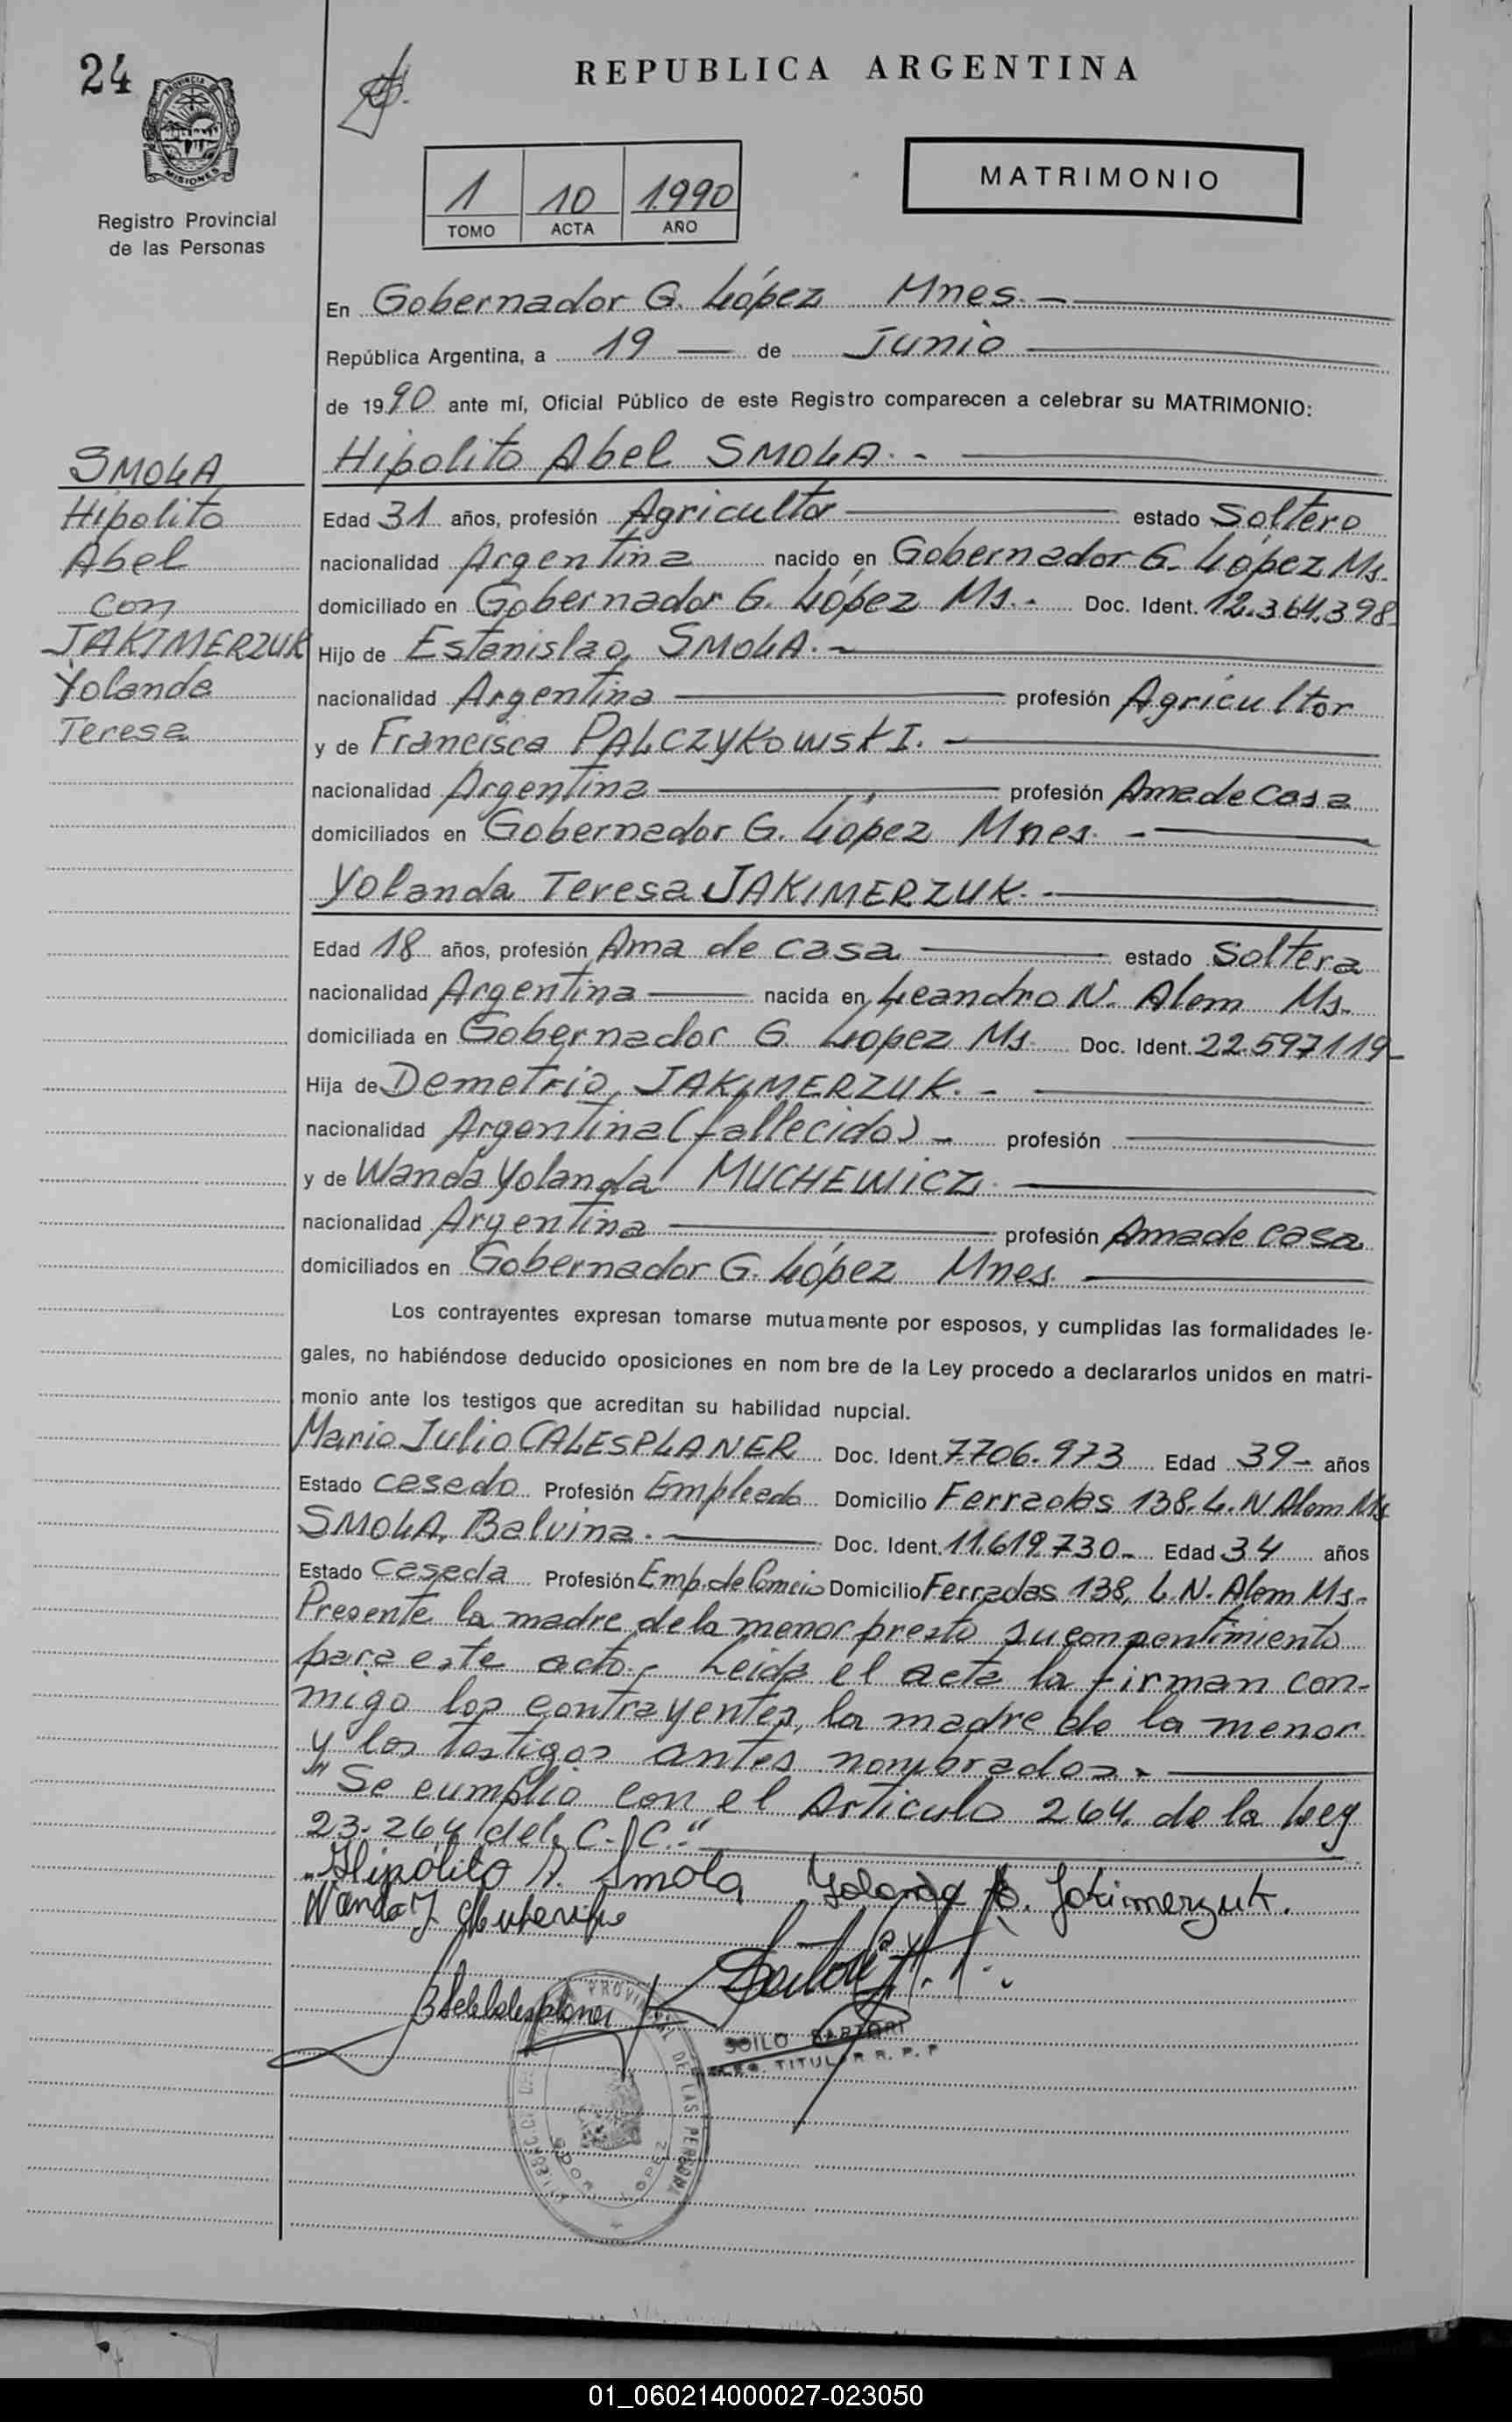 24
REPUBLICA ARGENTINA
PROVINCIA
MISIONES
Registro Provincial
de las Personas
1 10 1.990
TOMO ACTA AÑO
MATRIMONIO
En Gobernador G. López Mnes. -
República Argentina, a 19 de Junio
de 1990 ante mí, Oficial Público de este Registro comparecen a celebrar su MATRIMONIO:
Hipolito Abel SMOLA. -
SMOLA
Hipolito
Abel
con
JAKIMERZUK
Yolanda
Teresa
Edad 31 años, profesión Agricultor estado Soltero
nacionalidad Argentina nacido en Gobernador G. López Ms.
domiciliado en Gobernador G. López Ms. - Doc. Ident. 12.364.398
Hijo de Estanislao SMOLA. -
nacionalidad Argentina profesión Agricultor
y de Francisca PALCZYKOWSKI. -
nacionalidad Argentina profesión Ama de Casa
domiciliados en Gobernador G. López Mnes. -
Yolanda Teresa JAKIMERZUK. -
Edad 18 años, profesión Ama de casa estado Soltera
nacionalidad Argentina nacida en Leandro N. Alem Ms.
domiciliada en Gobernador G. López Ms. Doc. Ident. 22.597119-
Hija de Demetrio JAKIMERZUK. -
nacionalidad Argentina (fallecido) - profesión
y de Wanda Yolanda MUCHEWICZ.
nacionalidad Argentina profesión Ama de casa
domiciliados en Gobernador G. López Mnes.
Los contrayentes expresan tomarse mutuamente por esposos, y cumplidas las formalidades le-
gales, no habiéndose deducido oposiciones en nom bre de la Ley procedo a declararlos unidos en matri-
monio ante los testigos que acreditan su habilidad nupcial.
Mario Julio CALESPLANER Doc. Ident. 7.706.973 Edad 39- años
Estado casado Profesión Empleado Domicilio Ferradas 138. L. N Alem Ms
SMOLA, Balvina. - Doc. Ident. 11.619.730- Edad 34 años
Estado Casada Profesión Emp. de Comecio Domicilio Ferradas 138, L. N. Alem Ms-
Presente la madre de la menor presto su consentimiento
para este acto. Leida el acta la firman con-
migo los contrayentes, la madre de la menor
y los testigos antes nombrados. -
"Se cumplio con el Articulo 264 de la Ley
23.264 del C. C."
Hipólito A. Smola Yolanda Jakimerzuk.
Wanda Y.
SOILO SARTORI
TITULAR R. P. P
PROVINCIAL DE LAS PERSONAS
GDOR LOPEZ
01_060214000027-023050